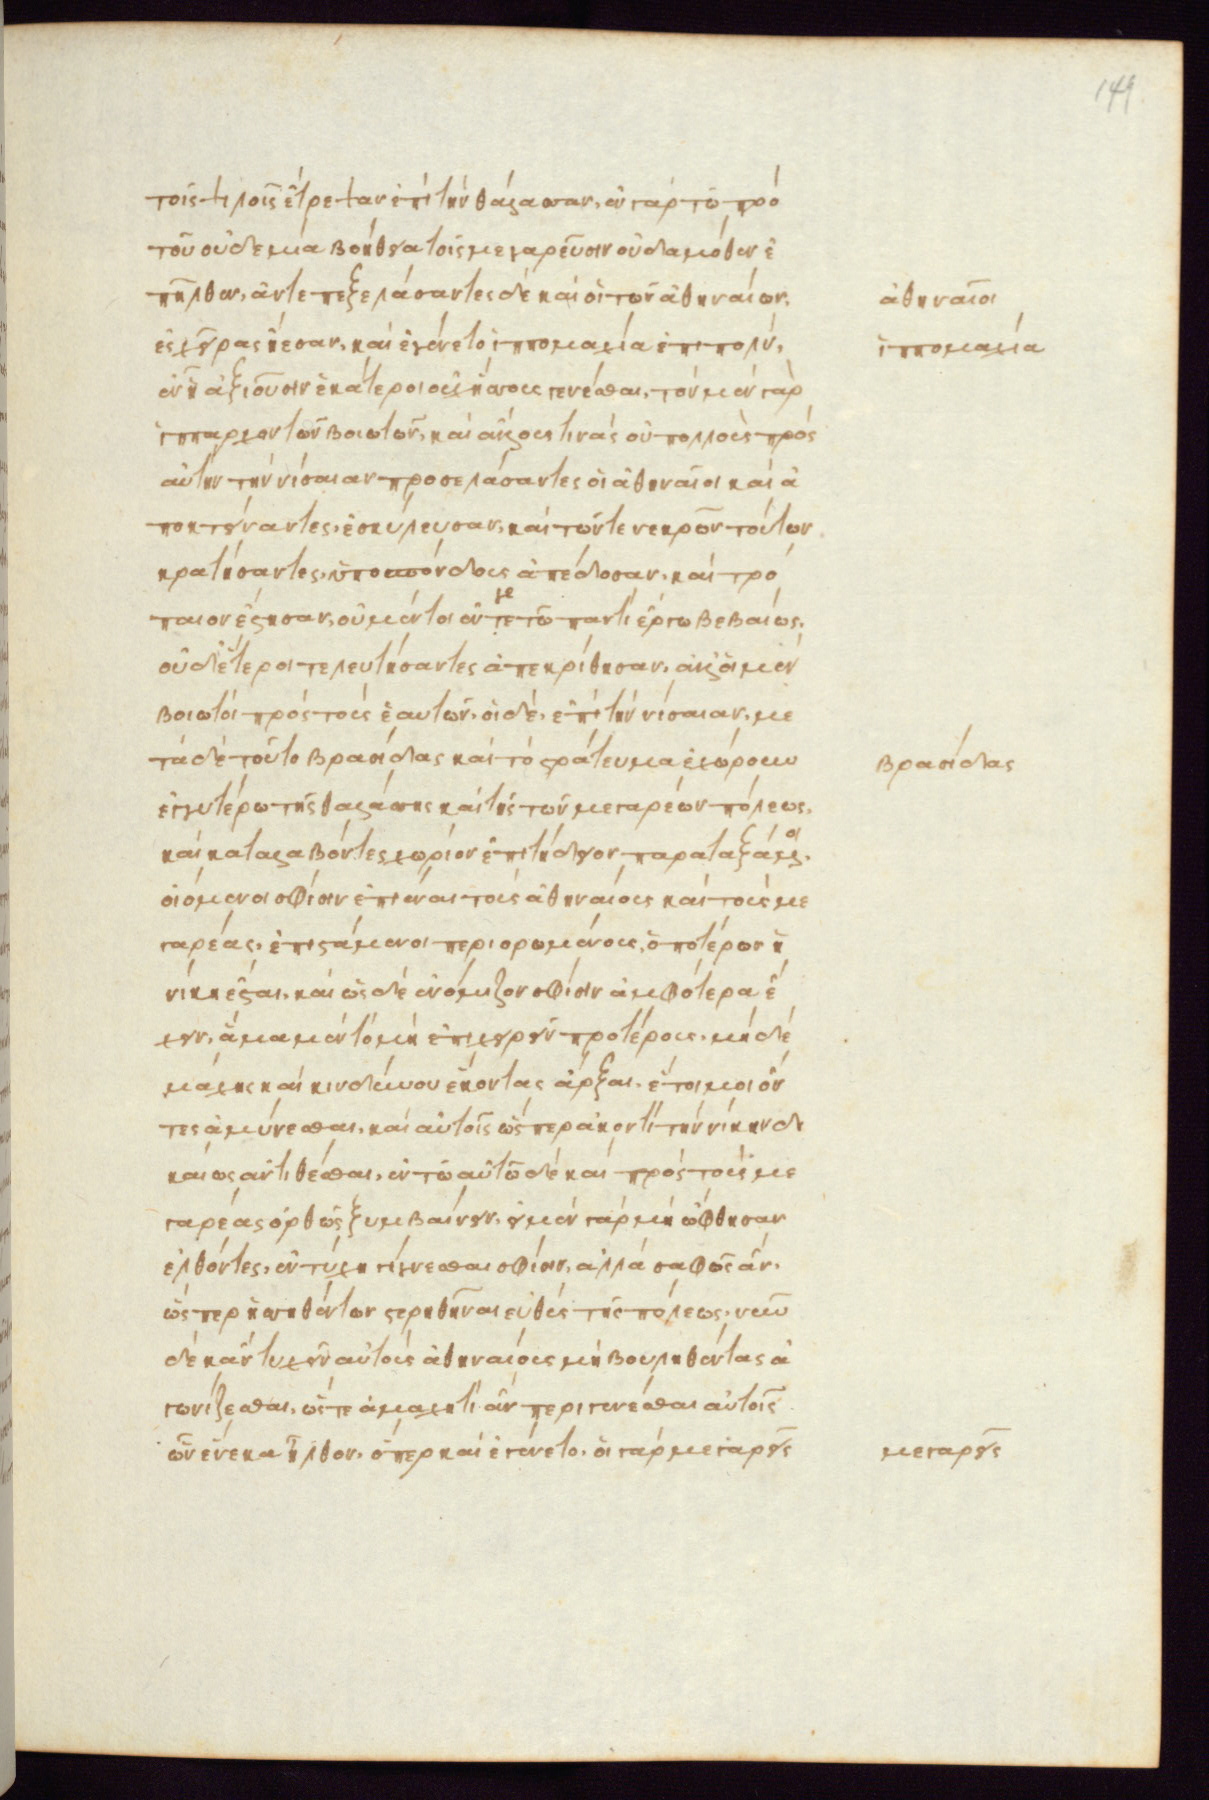 149
τοῖς ψιλοῖς ἔτρεψαν ἐπὶ τὴν θάλασσαν, ἐν γὰρ τῷ πρὸ
τοῦ οὐδεμία βοήθεια τοῖς μεγαρεῦσιν οὐδαμόθεν ἐ
πῆλθεν, ἀντεπεξελάσαντες δὲ καὶ οἱ τῶν ἀθηναίων,
ἐς χεῖρας ᾔεσαν, καὶ ἐγένετο ἱππομαχία ἐπὶ πολύ,
ἐν ᾗ ἀξιοῦσιν ἑκάτεροι οὐχ ἥσσους γενέσθαι, τὸν μὲν γὰρ
ἵππαρχον τῶν βοιωτῶν, καὶ ἄλλους τινὰς οὐ πολλοὺς πρὸς
αὐτὴν τὴν νίσαιαν προσελάσαντες οἱ ἀθηναῖοι καὶ ἀ
ποκτείναντες, ἐσκύλευσαν, καὶ τῶν τε νεκρῶν τούτων
κρατήσαντες, ὑποσπόνδους ἀπέδοσαν, καὶ τρό
παιον ἔστησαν, οὐ μέντοι ἔν τε γε τῶ παντὶ ἔργω βεβαίως,
οὐδέτεροι τελευτήσαντες ἀπεκρίθησαν, ἀλλ' οἱ μὲν
βοιωτοὶ πρὸς τοὺς ἑαυτῶν, οἱ δὲ, ἐπὶ τὴν νίσαιαν, με
τὰ δὲ τοῦτο βρασίδας καὶ τὸ στράτευμα ἐχώρουν
ἐγγυτέρω τῆς θαλάσσης καὶ τῆς τῶν μεγαρέων πόλεως,
καὶ καταλαβόντες χωρίον ἐπιτήδειον παραταξάμενοι,
οἰόμενοι σφίσιν ἐπιέναι τοὺς ἀθηναίους καὶ τοὺς με
γαρέας, ἐπιστάμενοι περιορωμένους, ὁποτέρων ἡ
νίκη ἔσται, καὶ ὡς δὲ ἐνόμιζον σφίσιν ἀμφότερα ἔ
χειν, ἅμα μὲν τὸ μὴ ἐπιχειρεῖν προτέρους, μηδὲ
μάχης καὶ κινδύνου ἑκόντας ἄρξαι, ἕτοιμοι ὄν
τες ἀμύνεσθαι, καὶ αὐτοῖς ὥσπερ ἀκοντὶ τὴν νίκην δι
καίως ἀντιθέσθαι, ἐν τῶ αὐτῶ δὲ καὶ πρὸς τοὺς με
γαρέας ὀρθῶς ξυμβαίνειν, εἰ μὲν γὰρ μὴ ὤφθησαν
ἐλθόντες, ἐν τύχη γίγνεσθαι σφίσιν, ἀλλὰ σαφῶς ἂν,
ὥσπερ ἡσσηθέντων στερηθῆναι εὐθὺς τῆς πόλεως, νῦν
δὲ κἂν τυχεῖν αὐτοὺς ἀθηναίους μὴ βουληθέντας ἀ
γωνίζεσθαι, ὥστε ἀμαχητὶ ἂν περιγενέσθαι αὐτοῖς
ὧν ἕνεκα ἦλθον, ὅπερ καὶ ἐγένετο, οἱ γὰρ μεγαρεῖς
ἀθηναῖοι
ἱππομαχία
βρασίδας
μεγαρεῖς